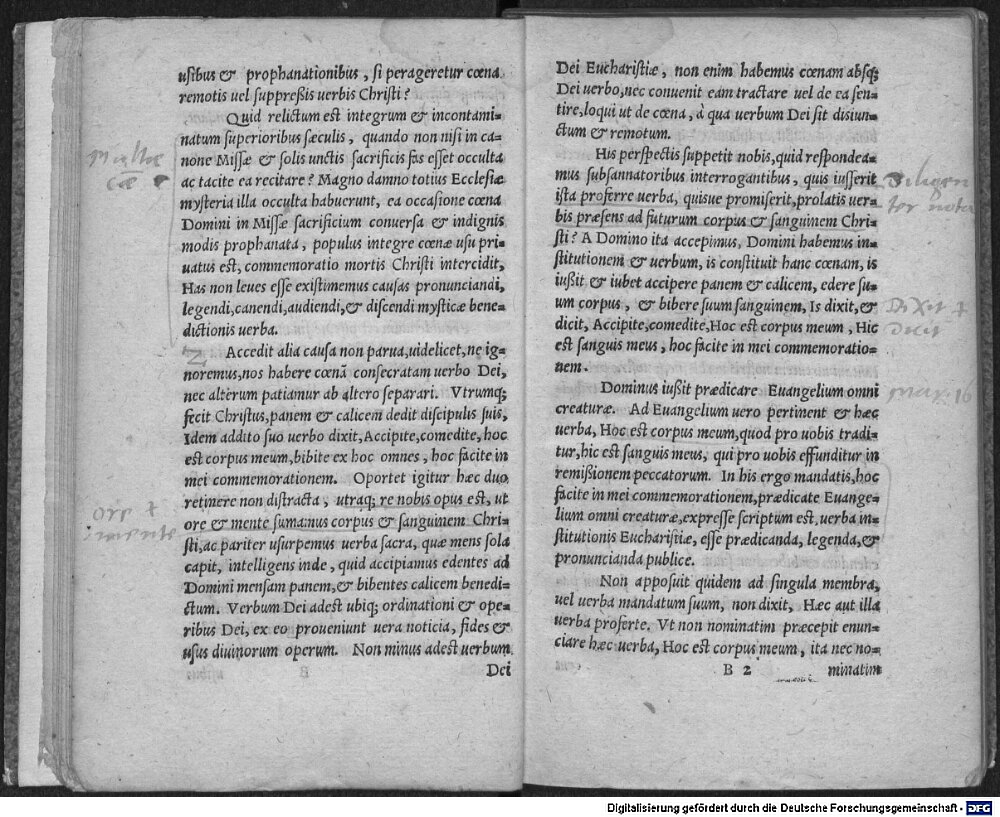 usibus & prophanationibus, si perageretur cœna
remotis uel suppreßis uerbis Christi?
Quid relictum est integrum & incontami=
natum superioribus sæculis, quando non nisi in ca=
none Missæ & solis unctis sacrificis fas esset occulta
ac tacite ea recitare? Magno damno totius Ecclesiæ
mysteria illa occulta habuerunt, ea occasione cœna
Domini in Missæ sacrificium conuersa & indignis
modis prophanata, populus integre cœnæ usu pri=
uatus est, commemoratio mortis Christi intercidit,
Has non leues esse existimemus causas pronunciandi,
legendi, canendi, audiendi, & discendi mysticæ bene=
dictionis uerba.
2 Accedit alia causa non parua, uidelicet, ne ig=
noremus, nos habere cœnã consecratam uerbo Dei,
nec alterum patiamur ab altero separari. Vtrumq;
fecit Christus, panem & calicem dedit discipulis suis,
Idem addito suo uerbo dixit, Accipite, comedite, hoc
est corpus meum, bibite ex hoc omnes, hoc facite in
mei commemorationem. Oportet igitur hæc duo
retinere non distracta, utraq; re nobis opus est, ut
ore & mente sumamus corpus & sanguinem Chri=
sti, ac pariter usurpemus uerba sacra, quæ mens sola
capit, intelligens inde, quid accipiamus edentes ad
Domini mensam panem, & bibentes calicem benedi=
ctum. Verbum Dei adest ubiq; ordinationi & ope=
ribus Dei, ex eo proueniunt uera noticia, fides &
usus diuinorum operum. Non minus adest uerbum
Dei
ore +
mente
Dei Eucharistiæ, non enim habemus cœnam absq;
Dei uerbo, nec conuenit eam tractare uel de ea sen=
tire, loqui ut de cœna, à qua uerbum Dei sit disiun=
ctum & remotum.
His perspectis suppetit nobis, quid respondea=
mus subsannatoribus interrogantibus, quis iusserit
ista proferre uerba, quisue promiserit, prolatis uer=
bis præsens ad futurum corpus & sanguinem Chri=
sti? A Domino ita accepimus, Domini habemus in=
stitutionem & uerbum, is constituit hanc cœnam, is
iußit & iubet accipere panem & calicem, edere su=
um corpus, & bibere suum sanguinem, Is dixit, &
dicit, Accipite, comedite, Hoc est corpus meum, Hic
est sanguis meus, hoc facite in mei commemoratio=
nem.
Dominus iußit prædicare Euangelium omni
creaturæ. Ad Euangelium uero pertinent & hæc
uerba, Hoc est corpus meum, quod pro uobis tradi=
tur, hic est sanguis meus, qui pro uobis effunditur in
remißionem peccatorum. In his ergo mandatis, hoc
facite in mei commemorationem, prædicate Euange=
lium omni creaturæ, expresse scriptum est, uerba in=
stitutionis Eucharistiæ, esse prædicanda, legenda, &
pronuncianda publice.
Non apposuit quidem ad singula membra,
uel uerba mandatum suum, non dixit, Hæc aut illa
uerba proferte. Vt non nominatim præcepit enun=
ciare hæc uerba, Hoc est corpus meum, ita nec no=
B 2 minatim
Diligen
ter nota
Dixit +
Dicit
Mar. 16
Digitalisierung gefördert durch die Deutsche Forschungsgemeinschaft - DFG